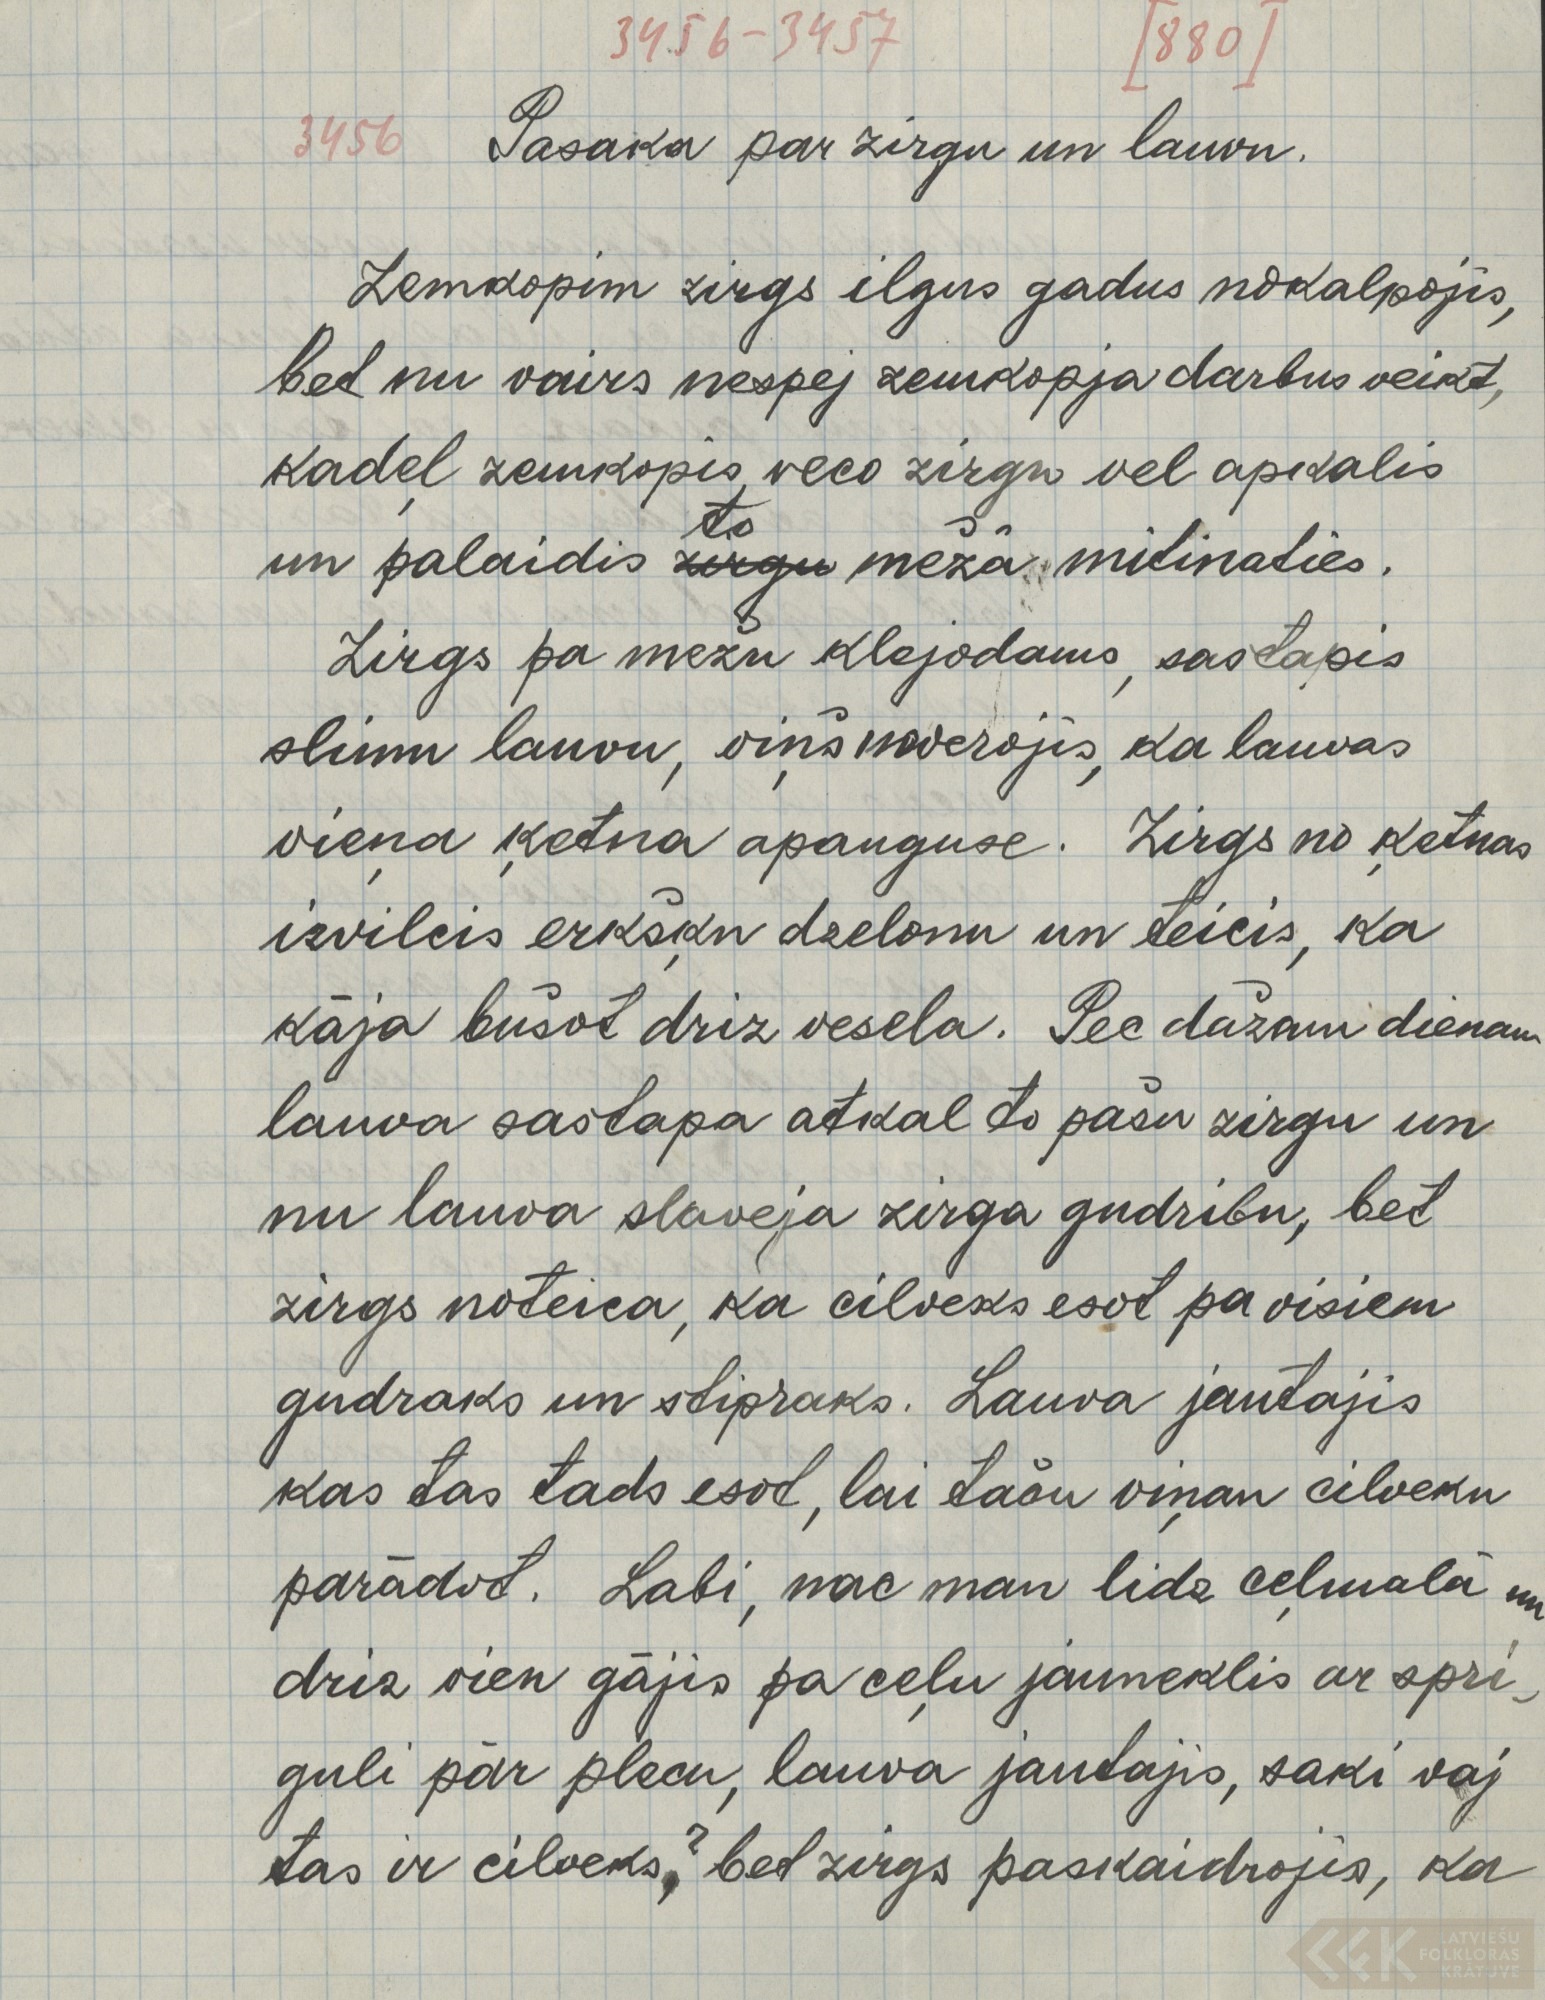 3456-3457 [880]
3456 Pasaka par zirgu un lauvu.
Zemkopim zirgs ilgus gadus nokalpojis,
bet nu vairs nespej zemkopja darbus veikt,
kadeļ zemkopis, veco zirgu vel apkalis
to
un palaidis zirgu mežâ mitinaties.
Zirgs pa mežu klejodams, sastapis
slimu lauvu, viņš noverojis, ka lauvas
vieņa ķetna apauguse. Zirgs no ķetnas
izvilcis erkšķu dzelonu un teicis, ka
kāja bušot driz vesela. Pec dažam dienam
lauva sastapa atkal to pašu zirgu un
nu lauva slaveja zirga gudribu, bet
zirgs noteica, ka cilveks esot pa visiem
gudraks un stipraks. Lauva jautajis
kas tas tads esot, lai taču viņan cilveku
parādot. Labi, nac man lidz ceļmalā un
driz vien gājis pa ceļu jauneklis ar spri-
guli pār plecu, lauva jautajis, saki vaj
tas ir cilveks,? bet zirgs paskaidrojis, ka
LATVIEŠU
FOLKLORAS
KRĀTUVE